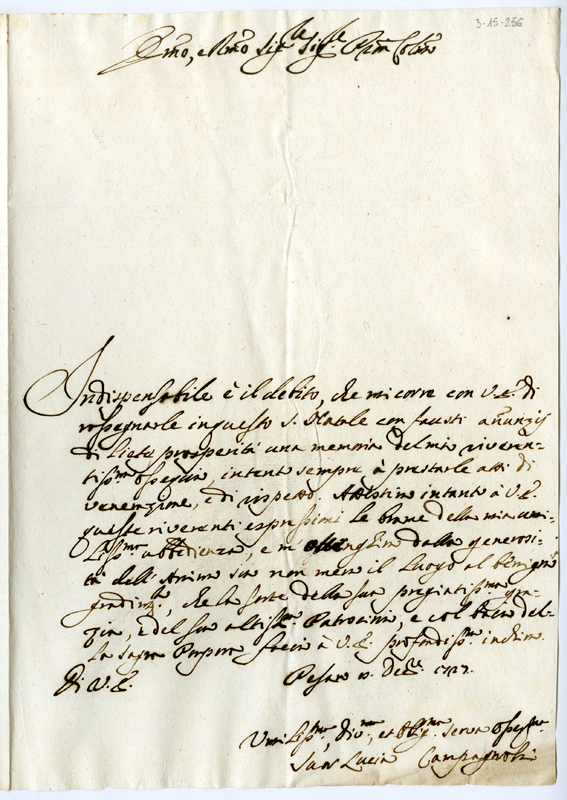 3-15-256
Emo, e Rmo Sig.re Sig.re Pron Colmo
Indispensabile è il debito, che mi corre con V.E. di
rassegnarle in questo S. Natale con fausti annunzij
di lieta prosperità una memoria del mio riveren-
tissmo ossequio, intento sempre à prestarle atti di
venerazione, e di rispetto. Attestino intanto à V.E.
queste riverenti espressioni le brame della mia umi-
lissma ubbidienza, e m' dalla generosi-
tà dell' Animo suo non meno il luogo al benigno
gradim.to, che la sorte della sua pregiatissma gra-
zia, e del suo altiss.mo Patrocinio, e col bacio del-
la sagra Porpora faccio à V.E. profondiss.mo inchino.
Di V.E. Pesaro Dec.re 1727.
Umiliss.mo, div.mo, et obblig.mo servo osseq.mo
Lucio Campagnoli